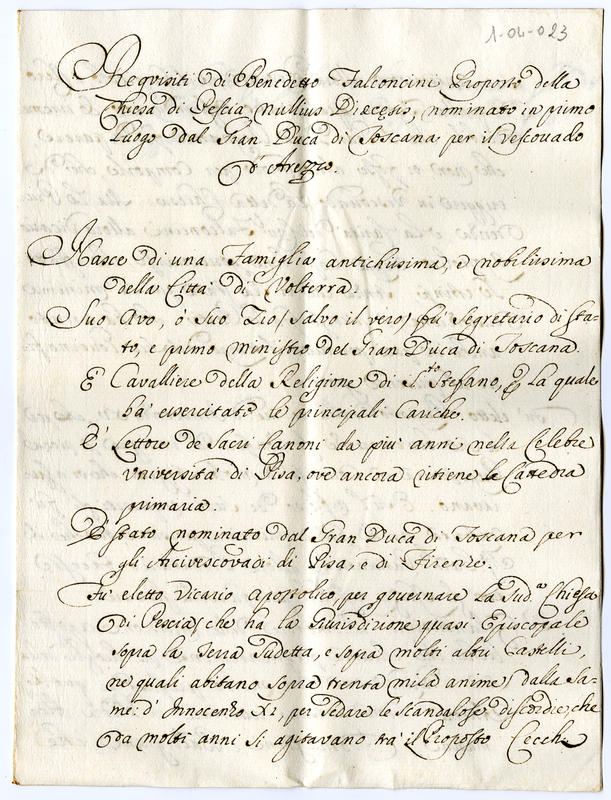 1-04-023
Requisiti di Benedetto Falconcini Proposto della
Chiesa di Pescia Nullius Diœcesis, nominato in primo
luogo dal Gran Duca di Toscana per il Vescovado
d'Arezzo.
Nasce di una Famiglia antichissima, e nobilissima
della Città di Volterra.
Suo Avo, ò suo Zio (salvo il vero) fù Segretario di Sta-
to, e primo Ministro del Gran Duca di Toscana.
È Cavalliere della Religione di S.to Stefano, la quale
hà esercitate le principali Cariche.
È Lettore de Sacri Canoni da più anni nella Celebre
Università di Pisa, ove ancora ritiene la Cattedra
primaria
È stato nominato dal Gran Duca di Toscana per
gli Arcivescovadi di Pisa, e di Firenze.
Fù eletto Vicario Apostolico, per governare la sud.a Chiesa
di Pescia (che ha la Giurisdizione quasi Episcopale
sopra la Terra sudetta, e sopra molti altri Castelli,
ne quali abitano sopra trenta mila anime) dalla Sa:
me: d'Innocenzo XI, per sedare le scandalose discordie, che
da molti anni si agitavano trà il Proposto Cecchi